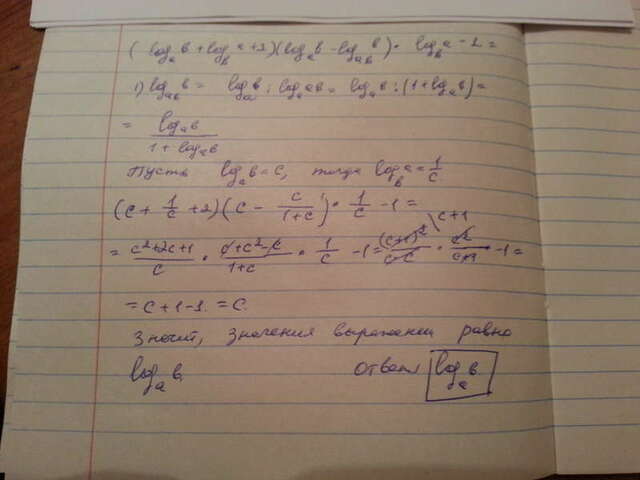 (log_a b + log_b a + 2)(log_a b - log_ab b) · log_b a - 1 =
1) log_ab b = log_a b : log_a ab = log_a b : (1 + log_a b) =
= log_a b / (1 + log_a b)
Пусть log_a b = c, тогда log_b a = 1/c.
(c + 1/c + 2)(c - c/(1+c)) · 1/c - 1 =
= (c²+2c+1)/c · (c+c²-c)/(1+c) · 1/c - 1 = (c+1)²/(c·c) · c²/(c+1) - 1 =
c+1
= c + 1 - 1 = c.
Значит, значения выражении равно
log_a b. Ответ: log_a b.